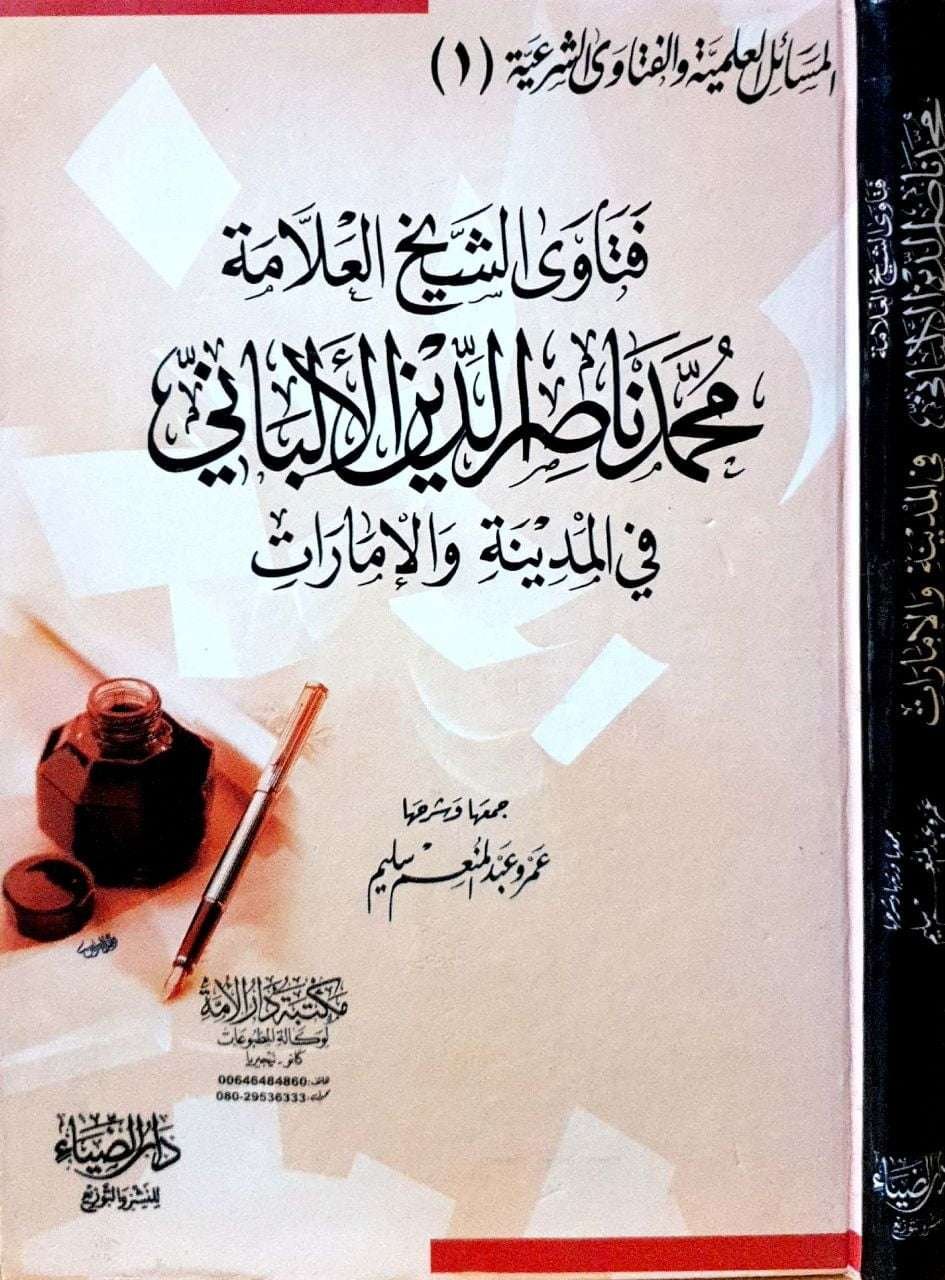 المسائل العلمية والفتاوى الشرعية (١)
فَتَاوَى الشَّيْخِ العَلَّامَة
مُحَمَّد نَاصِر الدِّين الأَلْبَانِيّ
في المَدِيْنَة وَالإمَارَات
جمعها وشرحها
عمرو عبد المنعم سليم
مكتبة دار الأمة
لوكالة المطبوعات
كانو - نيجيريا
هاتف: 00646484860
080-29536333
دار الضياء
للنشر والتوزيع
فتاوى الشيخ العلامة
محمد ناصر الدين الألباني
في المدينة والإمارات
جمعها وشرحها
عمرو عبد المنعم سليم
الضياء